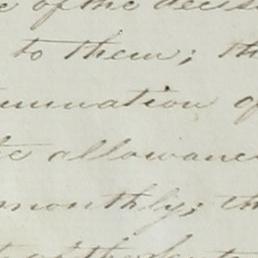 of the decis
to them; th
mination o
allowance
monthly; th